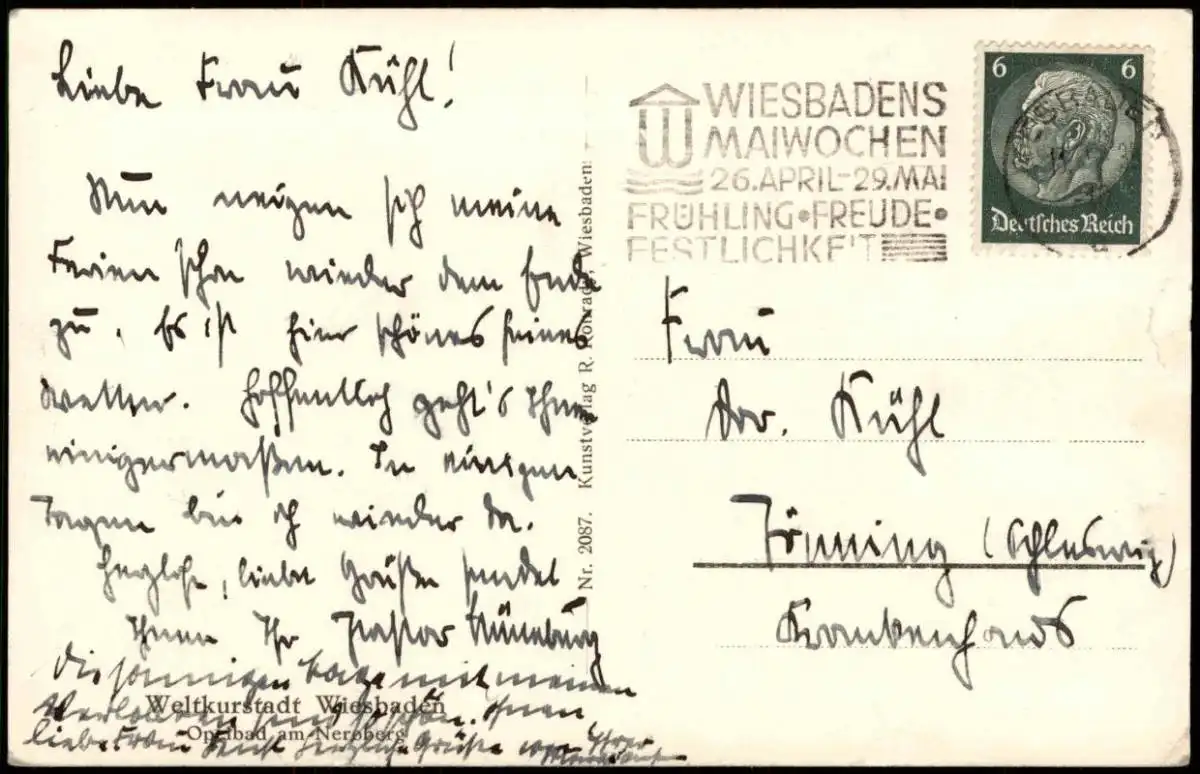 Liebe Frau Kühl!
Nun neigen sich meine
Ferien schon wieder dem Ende
zu. Es ist hier schönes feines
Wetter. Hoffentlich geht's Ihnen
einigermaßen. In einigen
Tagen bin ich wieder da.
Herzliche, liebe Grüße sendet
Ihnen Ihr Pastor
Die sonnigen Tage mit meinem
Verlobten sind so schön. Ihnen,
liebe Frau herzliche Grüße von Ihrer
Weltkurstadt Wiesbaden
Opelbad am Neroberg
Nr. 2087. Kunstverlag R. Konrady, Wiesbaden
WIESBADENS
MAIWOCHEN
26. APRIL-29. MAI
FRÜHLING•FREUDE•
FESTLICHKEIT
6 6
Deutsches Reich
Frau
Dr. Kühl
Tönning (Schleswig)
Krankenhaus